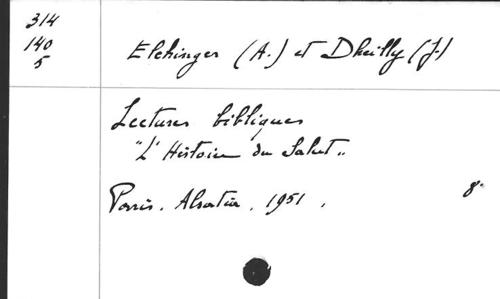 314
140
5
Elchinger (A.) et Dheilly (J.)
Lectures bibliques
"L'Histoire du Salut"
Paris. Alsatia. 1951. 8°